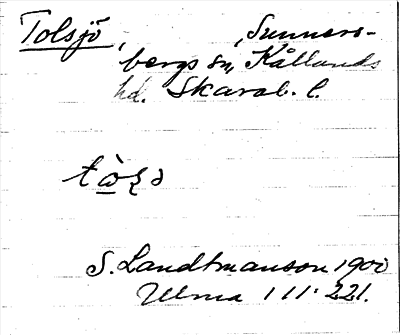 Tolsjö, Sunners-
bergs sn, Kållands
hd. Skarab. l.
S. Landtmanson 1900
Ulma 111:221.